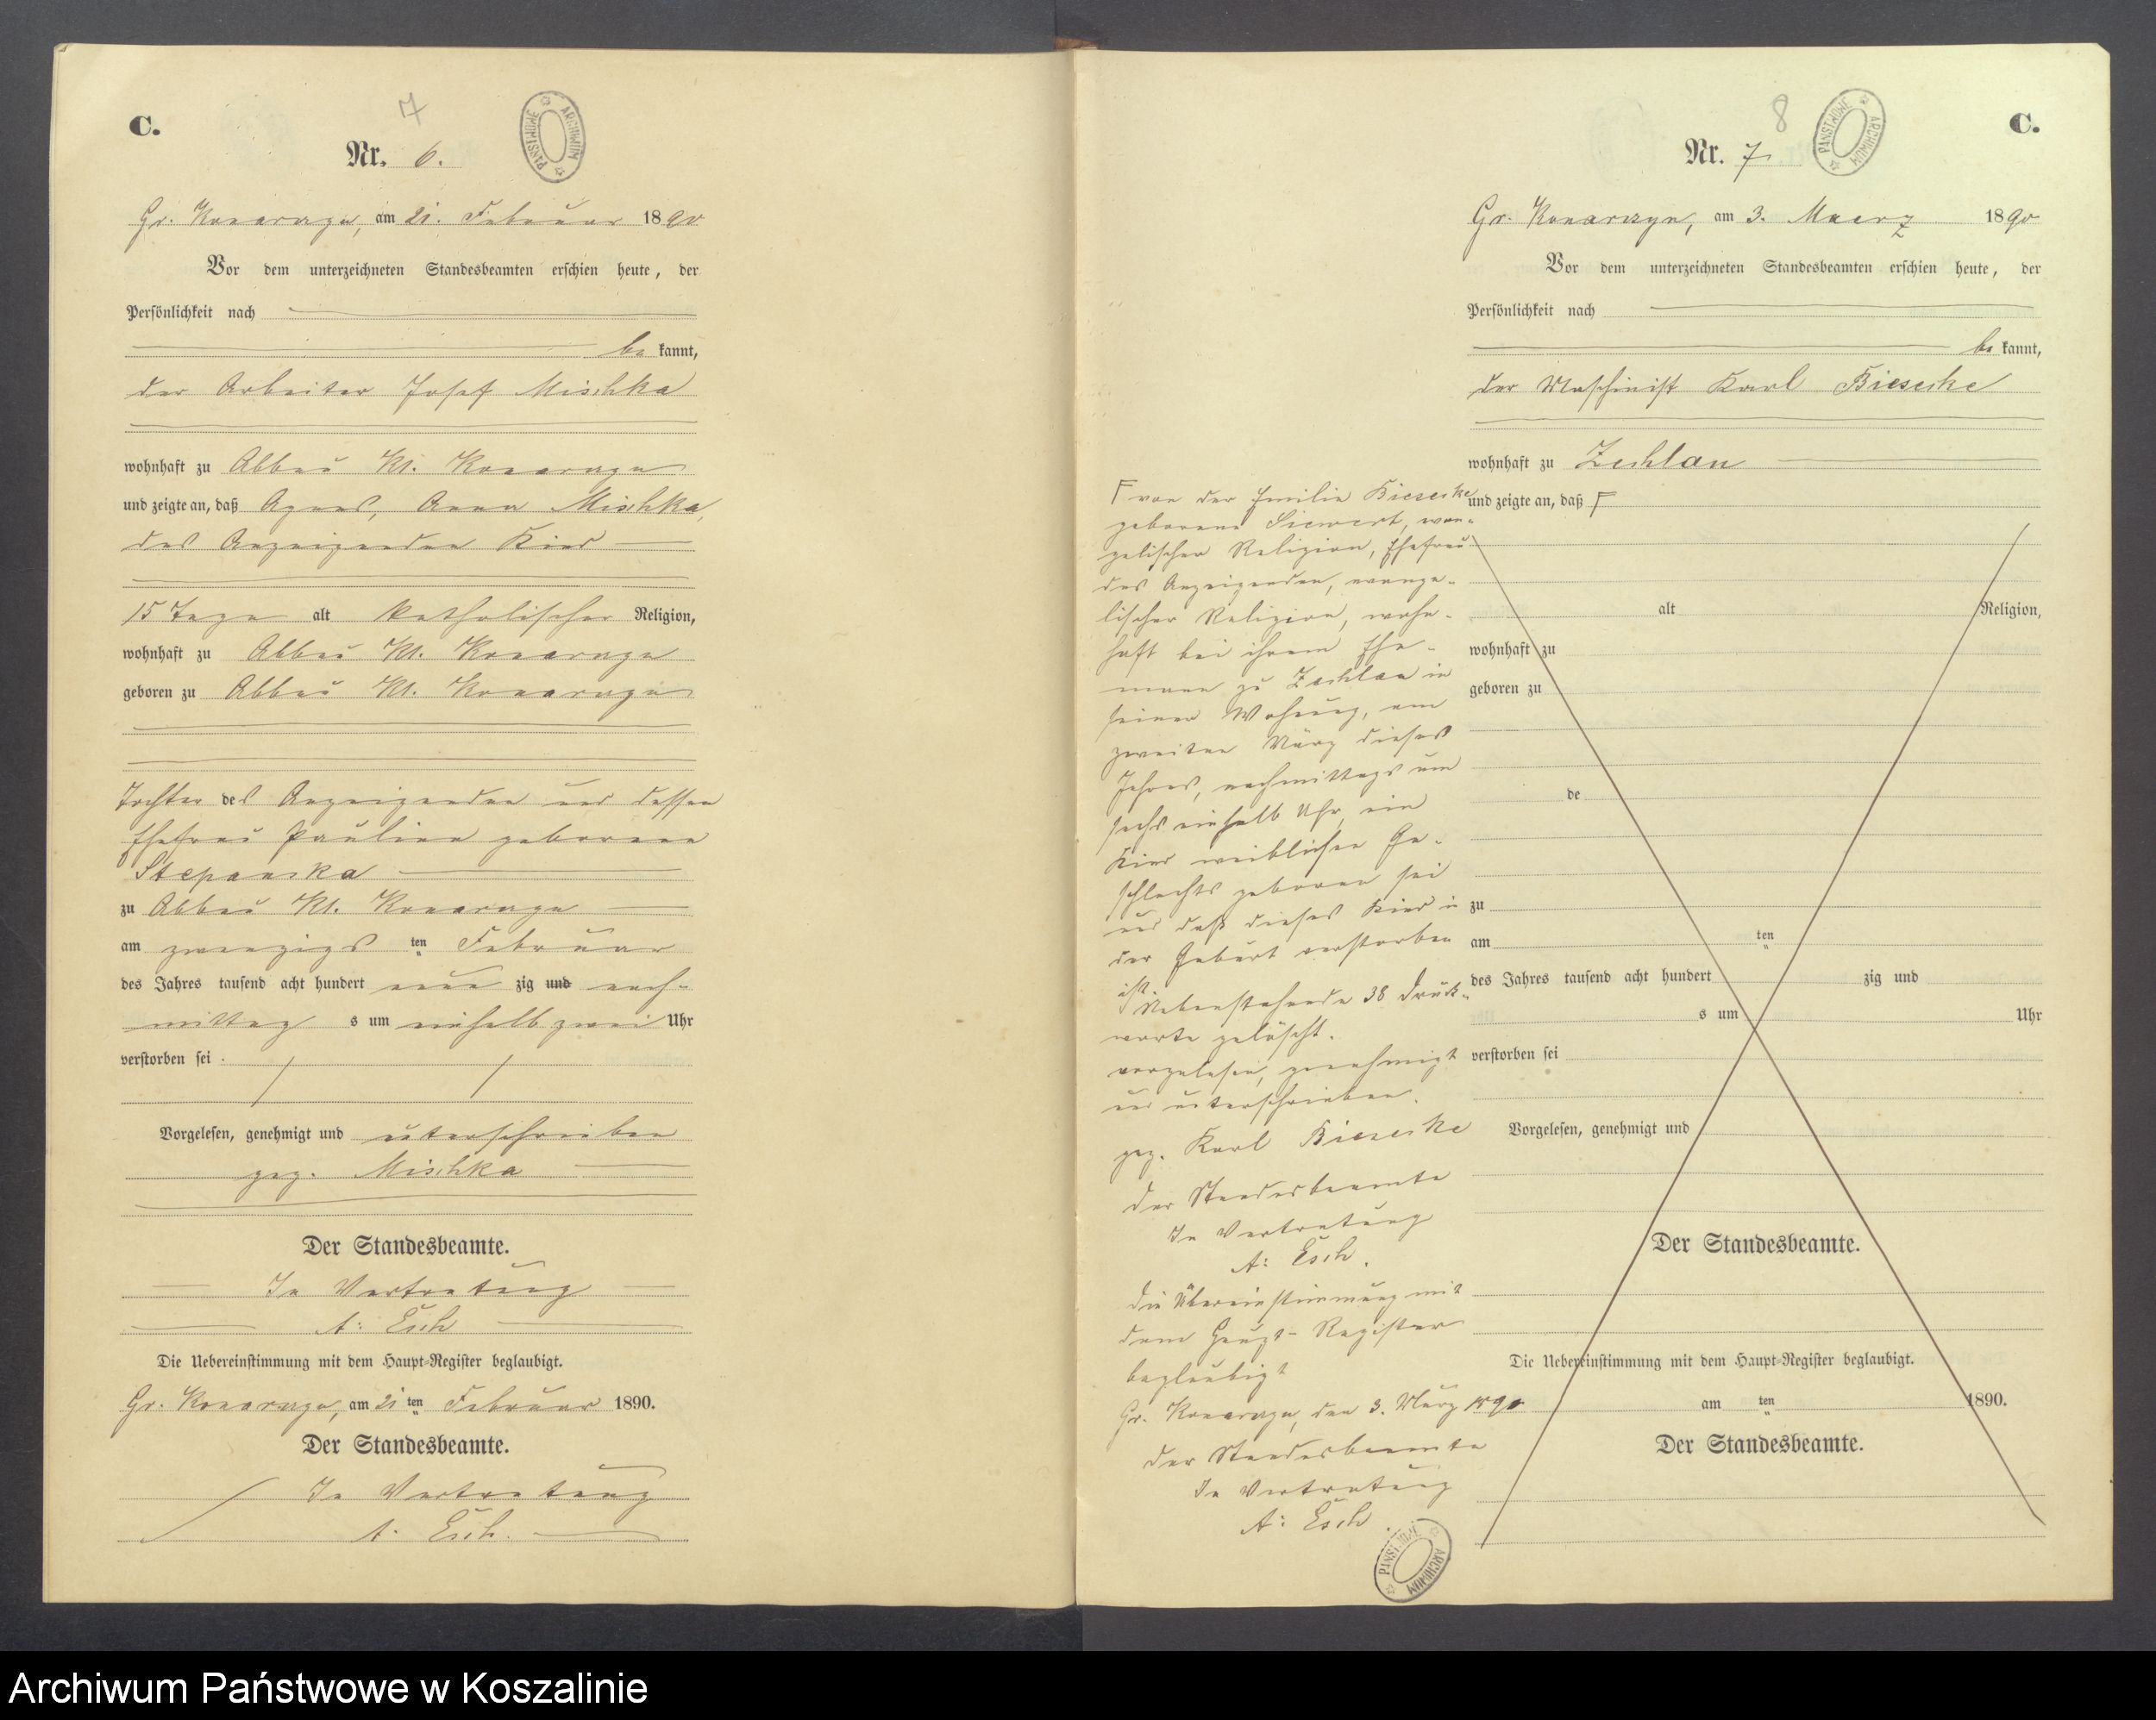 C.
7
ARCHIWUM PAŃSTWOWE
Nr. 6.
Gr. Konarczyn, am 21. Februar 1890
Vor dem unterzeichneten Standesbeamten erschien heute, der
Persönlichkeit nach
be kannt,
der Arbeiter Josef Mischka
wohnhaft zu Abbau Kl. Konarczyn
und zeigte an, daß Agnes, Anna Mischka,
des Anzeigenden Kind
15 Tage alt katholischer Religion,
wohnhaft zu Abbau Kl. Konarczyn
geboren zu Abbau Kl. Konarczyn
Tochter des Anzeigenden und dessen
Ehefrau Pauline geborene
Stepanska
zu Abbau Kl. Konarczyn
am zwanzigsten Februar
des Jahres tausend acht hundert neun zig und nach-
mittag s um einhalb zwei Uhr
verstorben sei
Vorgelesen, genehmigt und unterschrieben
gez. Mischka
Der Standesbeamte.
In Vertretung
A: Esch
Die Uebereinstimmung mit dem Haupt-Register beglaubigt.
Gr. Konarczyn, am 21 ten Februar 1890.
Der Standesbeamte.
In Vertretung
A. Esch.
C.
8
ARCHIWUM PAŃSTWOWE
Nr. 7
Gr. Konarczyn, am 3. Maerz 1890
Vor dem unterzeichneten Standesbeamten erschien heute, der
Persönlichkeit nach
be kannt,
der Maschinist Karl Bieseske
wohnhaft zu Zechlau
und zeigte an, daß
alt Religion,
wohnhaft zu
geboren zu
de
zu
am ten
des Jahres tausend acht hundert zig und
s um Uhr
verstorben sei
Vorgelesen, genehmigt und
Der Standesbeamte.
Die Uebereinstimmung mit dem Haupt-Register beglaubigt.
am ten 1890.
Der Standesbeamte.
von der Emilie Bieseske
geborene Siewert, evan-
gelischer Religion, Ehefrau
des Anzeigenden, evange-
lischer Religion, wohn-
haft bei ihrem Ehe-
mann zu Zechlau in
seiner Wohnung, am
zweiten März dieses
Jahres, nachmittags um
sechs einhalb Uhr, ein
Kind weiblichen Ge-
schlechts geboren sei
und daß dieses Kind in
der Geburt verstorben
ist.
Nebenstehende 38 Druck-
worte gelöscht.
vorgelesen, genehmigt
und unterschrieben.
gez. Karl Bieseske
Der Standesbeamte
In Vertretung
A: Esch.
Die Übereinstimmung mit
dem Haupt-Register
beglaubigt
Gr. Konarczyn, den 3. März 1890
Der Standesbeamte
In Vertretung
A: Esch.
ARCHIWUM PAŃSTWOWE
Archiwum Państwowe w Koszalinie